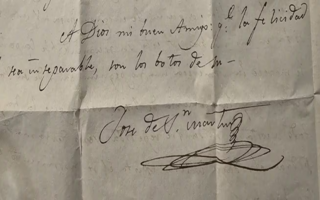 A Dios mi buen Amigo: q.e la felicidad
sea inseparable, son los botos de su -
Jose de S.n Martin